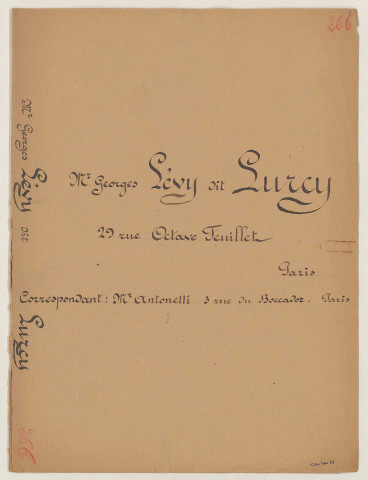 266
Mr Georges Lévy dit Lurcy
29 rue Octave Feuillet
Paris
Correspondant : Me Antonetti 3 rue du Boccador. Paris
Mr Georges Lévy dit Lurcy 266